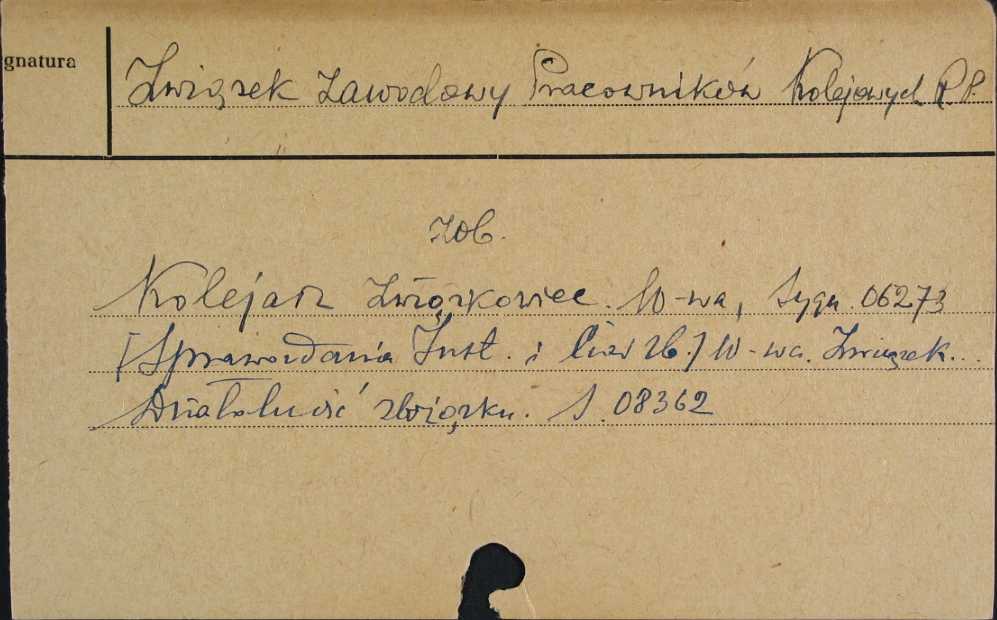 gnatura
Związek Zawodowy Pracowników Kolejowych R.P.
zob.
Kolejarz Związkowiec. W-wa, Sygn. 06273
[Sprawozdania Inst. i Zw.] W-wa. Związek...
Działalność związku. S. 08362